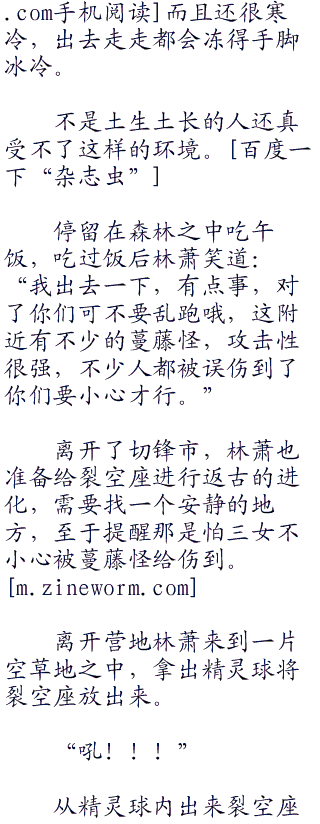 .com手机阅读]而且还很寒
冷，出去走走都会冻得手脚
冰冷。
不是土生土长的人还真
受不了这样的环境。[百度一
下“杂志虫”]
停留在森林之中吃午
饭，吃过饭后林萧笑道：
“我出去一下，有点事，对
了你们可不要乱跑哦，这附
近有不少的蔓藤怪，攻击性
很强，不少人都被误伤到了
你们要小心才行。”
离开了切锋市，林萧也
准备给裂空座进行返古的进
化，需要找一个安静的地
方，至于提醒那是怕三女不
小心被蔓藤怪给伤到。
[m.zineworm.com]
离开营地林萧来到一片
空草地之中，拿出精灵球将
裂空座放出来。
“吼！！！”
从精灵球内出来裂空座